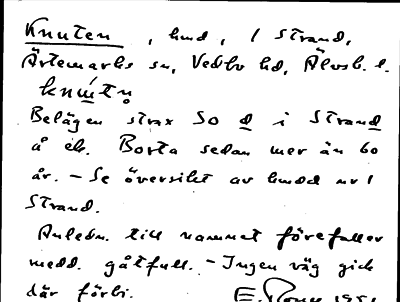 Knuten, hmd, 1 Strand,
Ärtemarks sn, Vedbo hd, Älvsb. l.
Belägen strax So d i Strand
å ek. Borta sedan mer än 60
år. - Se översikt av hmdd nr 1
Strand.
Anledn. till namnet förefaller
medd. gåtfull. - Ingen väg gick
där förbi.